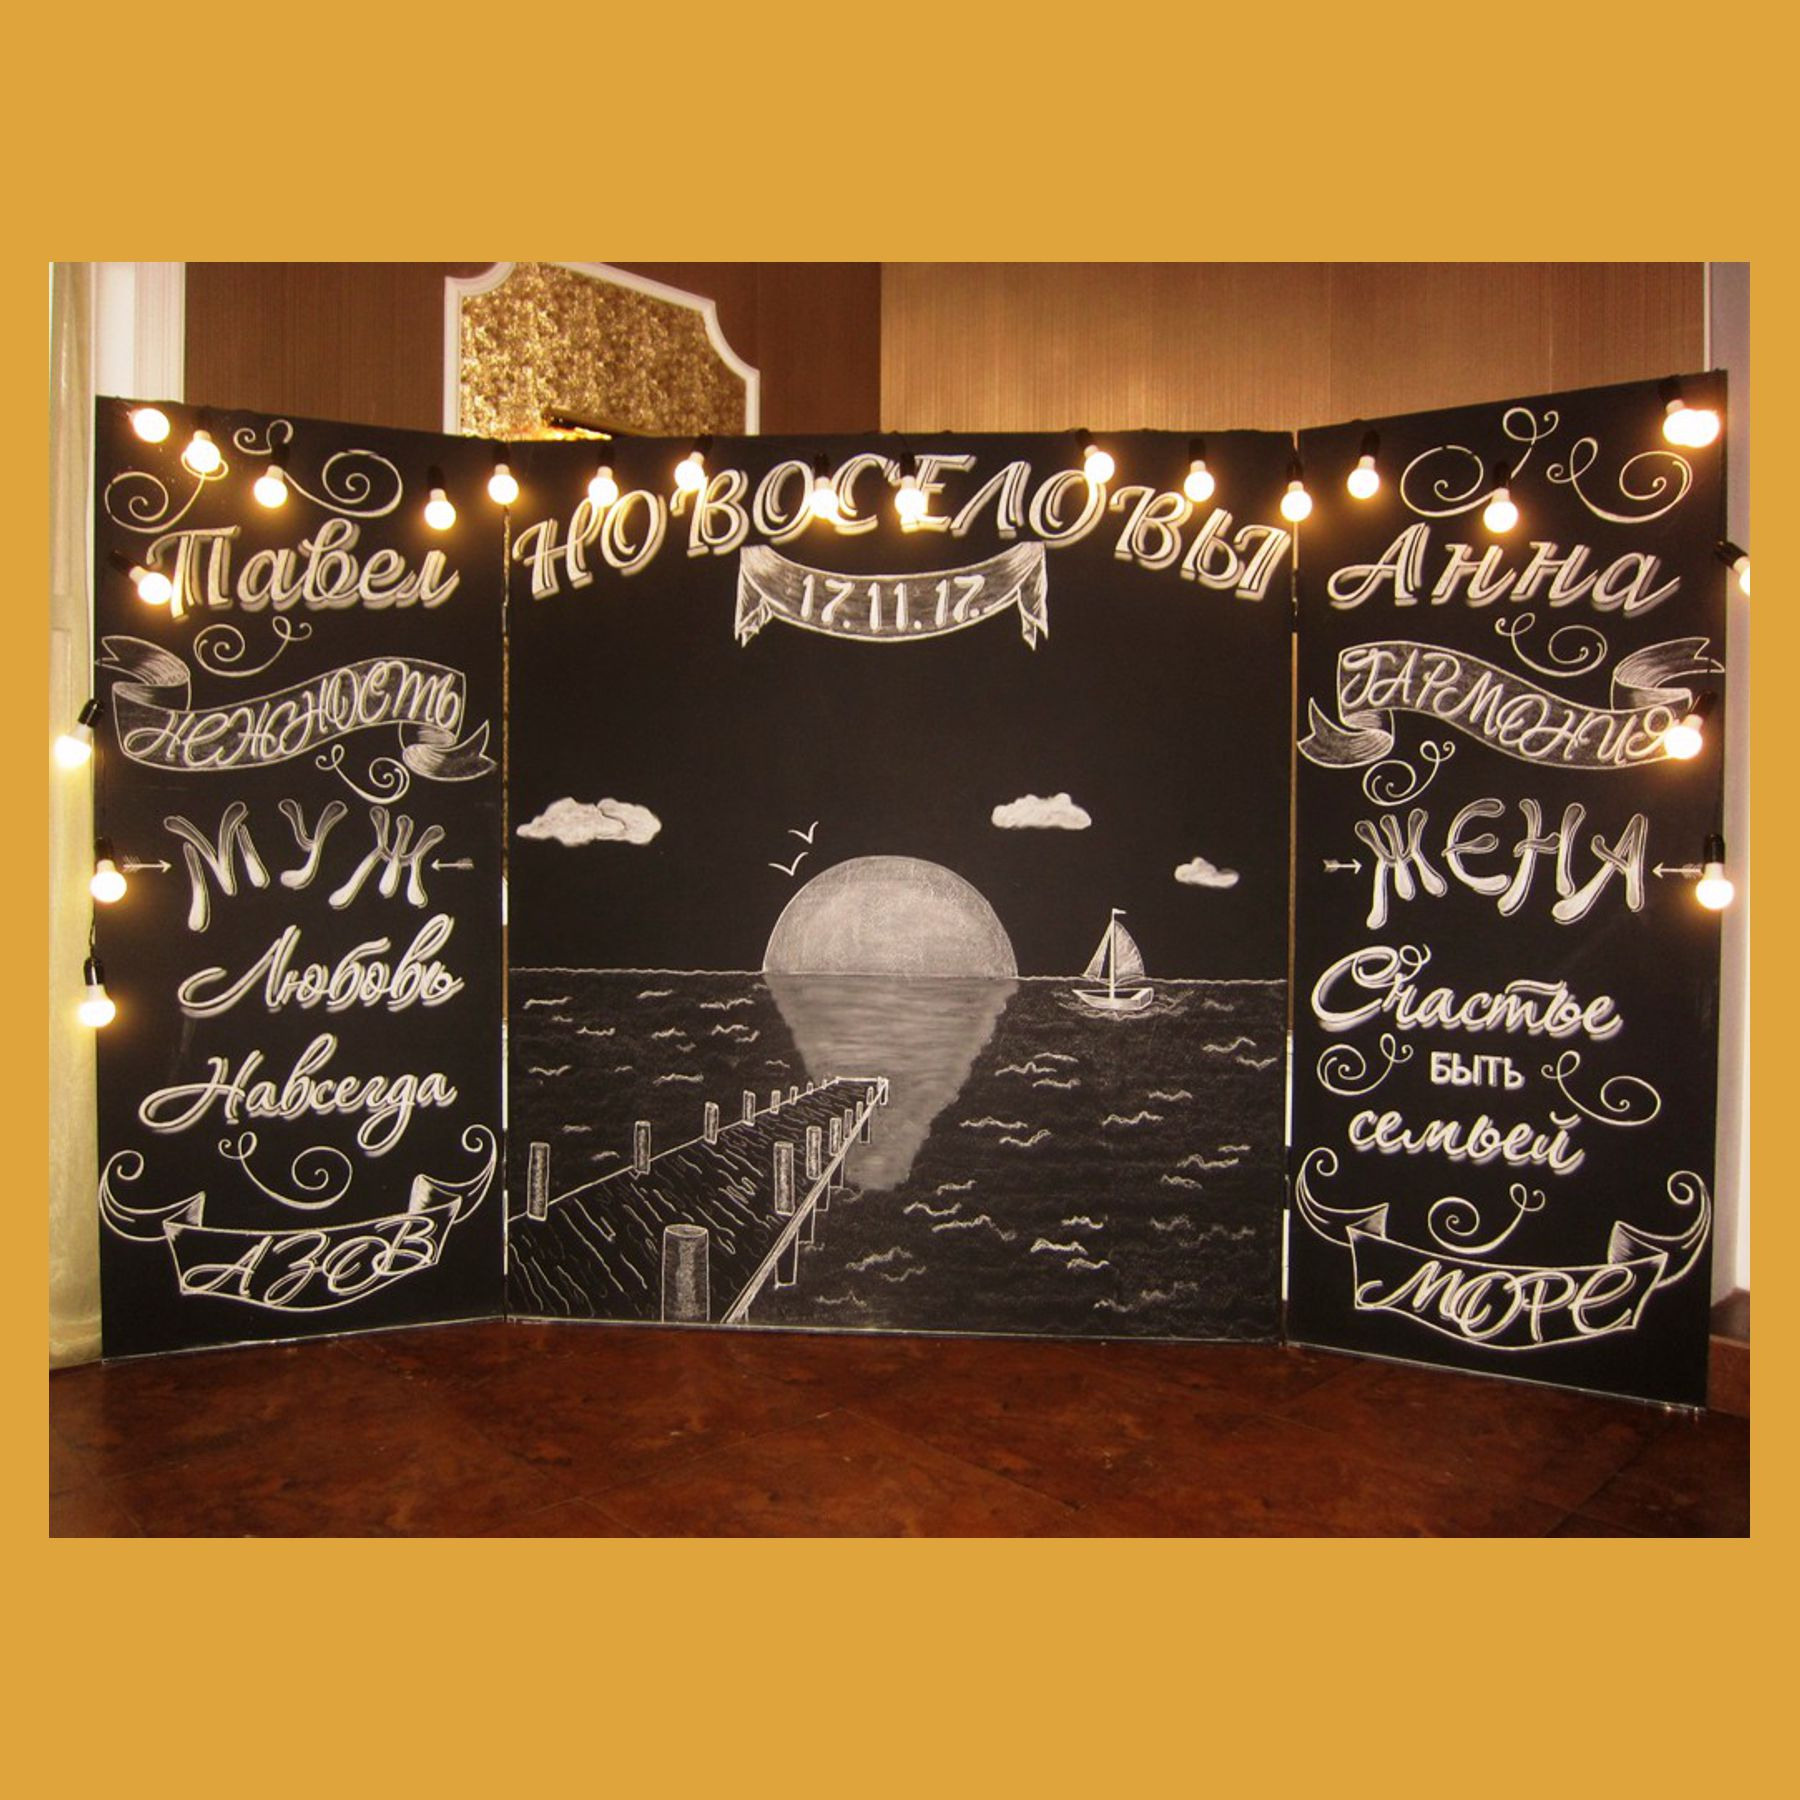 Павел
НЕЖНОСТЬ
МУЖ
Любовь
Навсегда
АЗОВ
НОВОСЕЛОВЫ
17.11.17.
Анна
ГАРМОНИЯ
ЖЕНА
Счастье
БЫТЬ
семьей
МОРЕ